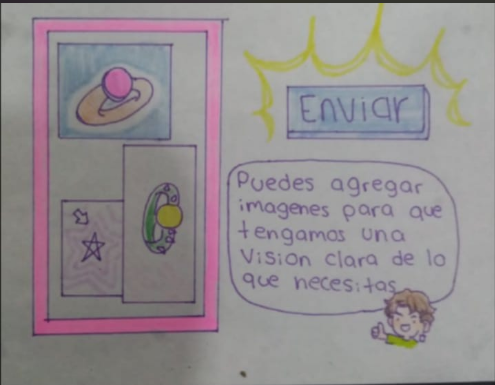 Enviar
Puedes agregar
imagenes para que
tengamos una
Vision clara de lo
que necesitas